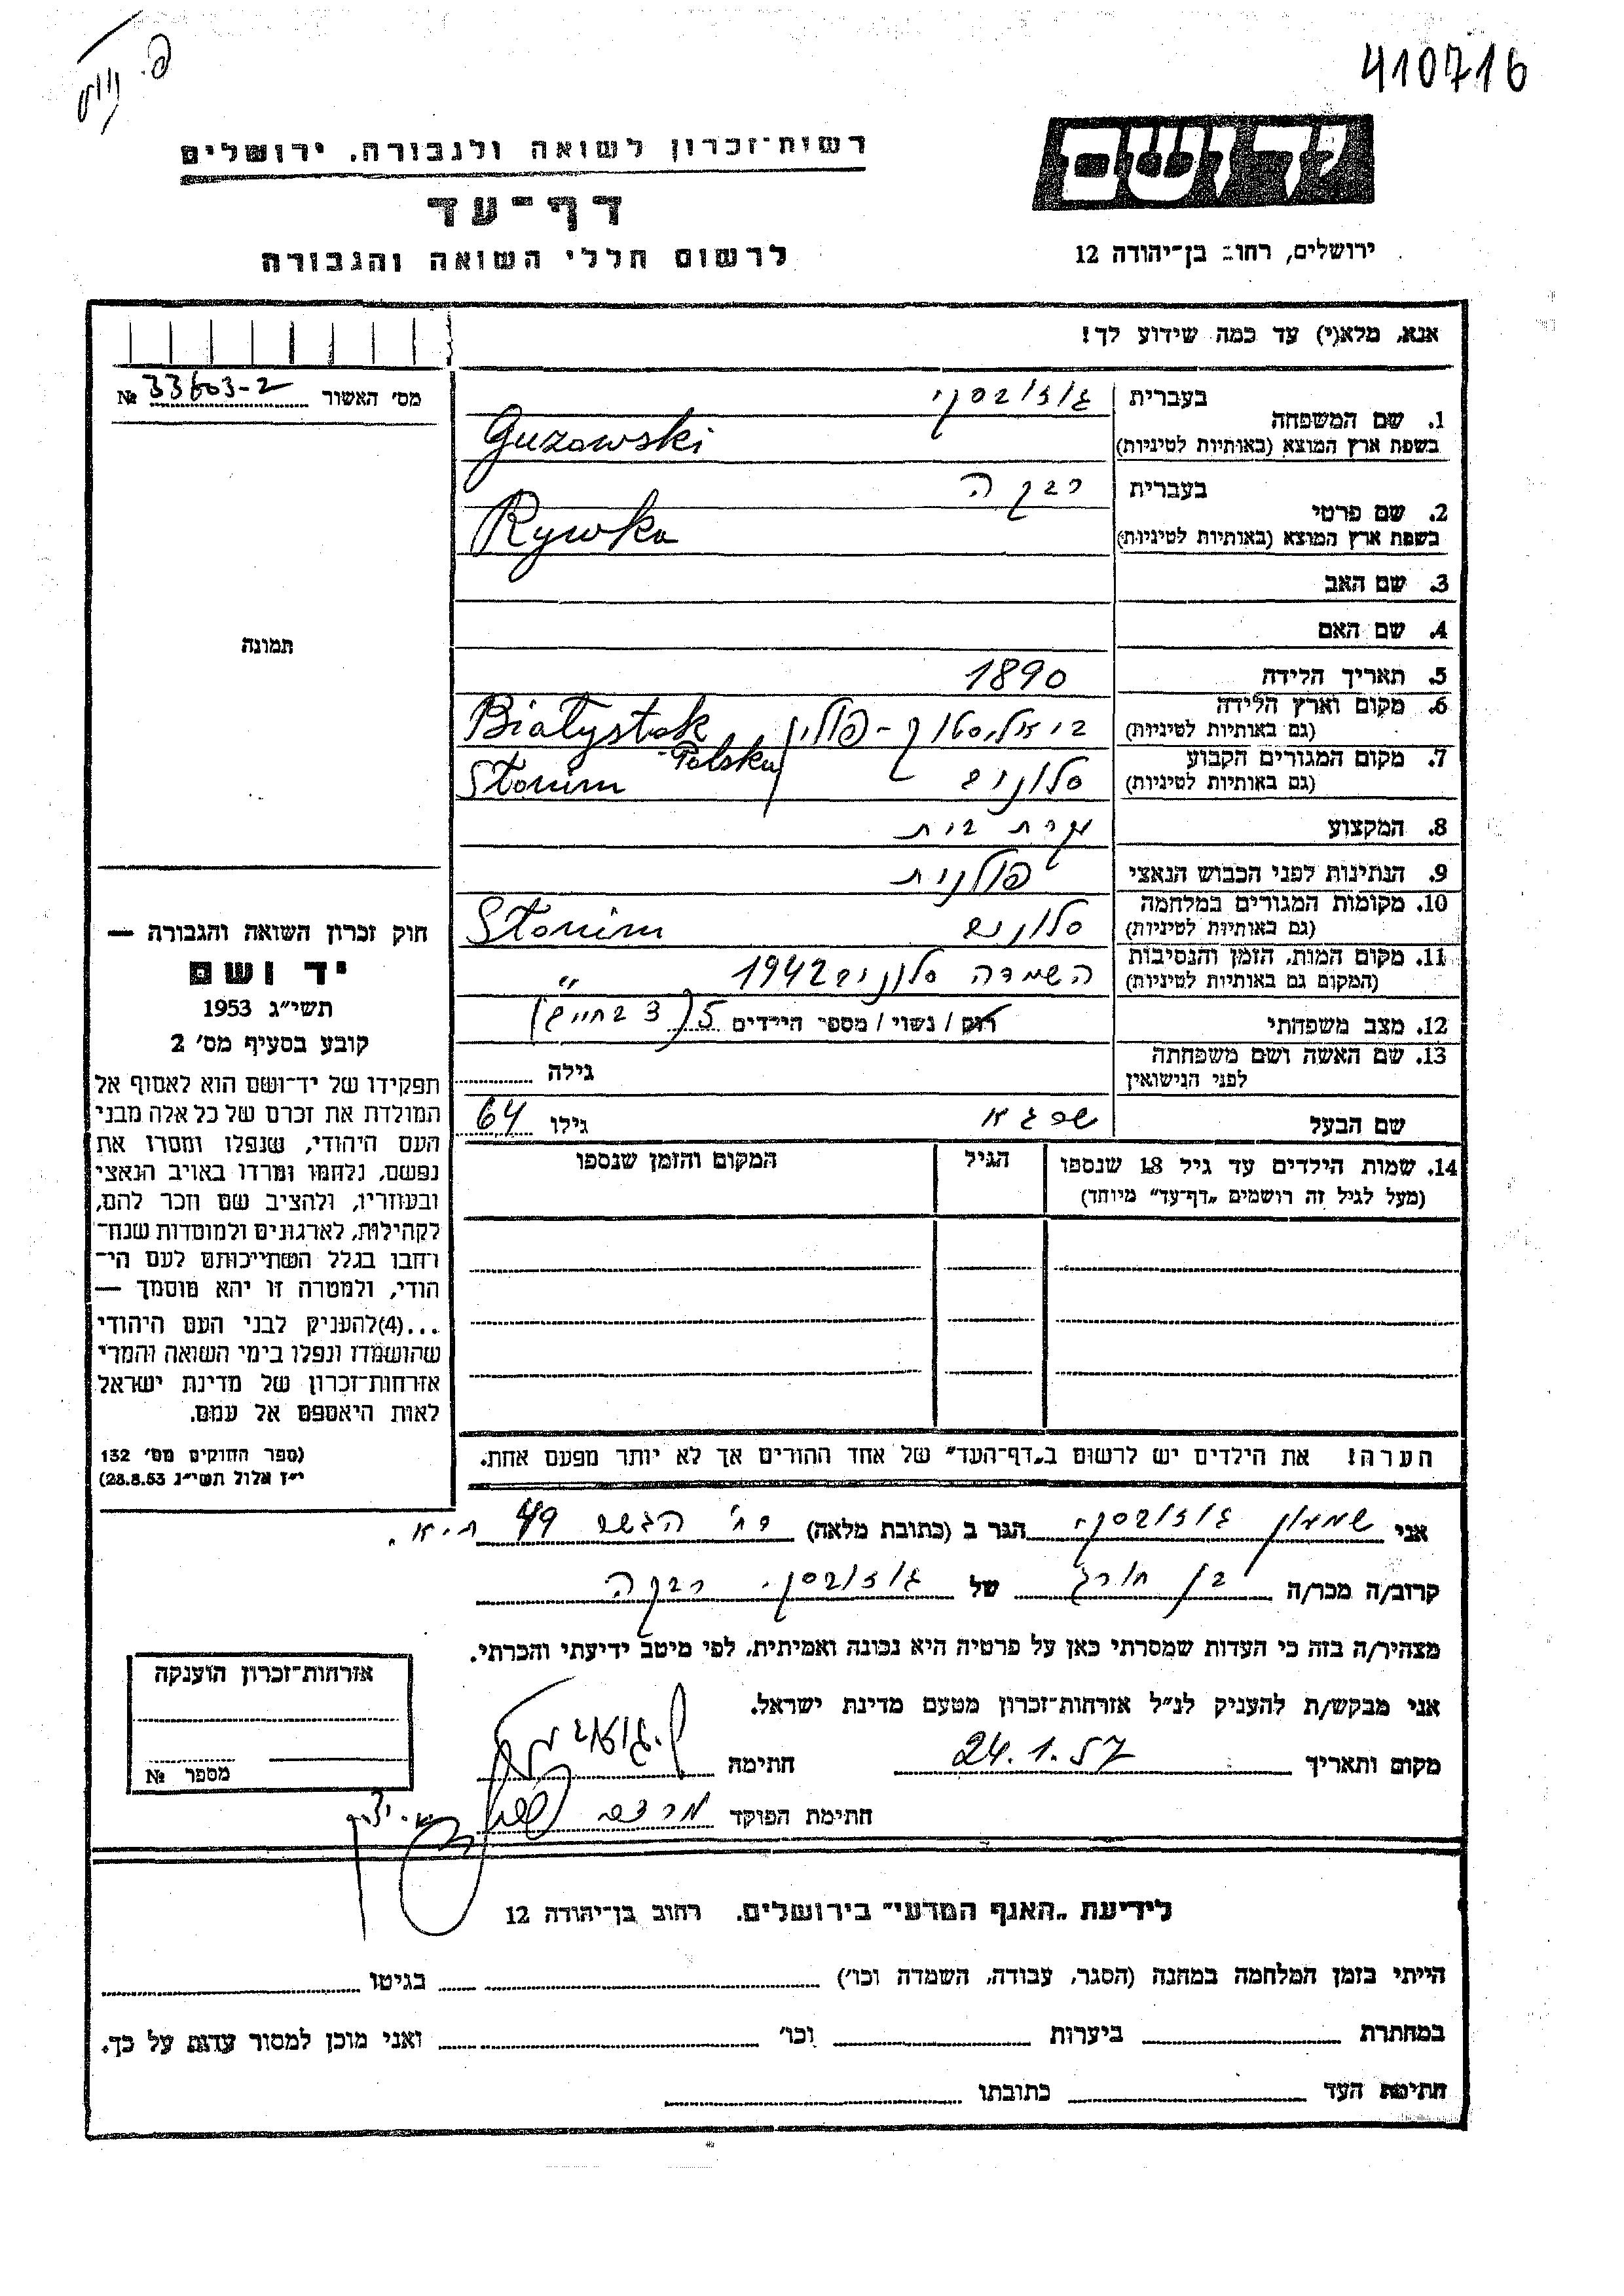 410716
יד ושם
רשות־זכרון לשואה ולגבורה. ירושלים
דף־עד
לרשום חללי השואה והגבורה
ירושלים, רחוב בן־יהודה 12
אנא, מלא(י) עד כמה שידוע לך!
מס׳ האשור № 33603-2
1. שם המשפחה בעברית גוזובסקי
בשפת ארץ המוצא (באותיות לטיניות) Guzowski
2. שם פרטי בעברית רבקה
בשפת ארץ המוצא (באותיות לטיניות) Rywka
3. שם האב
4. שם האם
5. תאריך הלידה 1890
6. מקום וארץ הלידה ביאליסטוק - פולין Białystok
(גם באותיות לטיניות) Polska
7. מקום המגורים הקבוע סלונים Słonim
(גם באותיות לטיניות)
8. המקצוע עקרת בית
9. הנתינות לפני הכבוש הנאצי פולנית
10. מקומות המגורים במלחמה סלונים Słonim
(גם באותיות לטיניות)
11. מקום המות, הזמן והנסיבות השמדה סלונים 1942 "
(המקום גם באותיות לטיניות)
12. מצב משפחתי רוק / נשוי / מספר הילדים 5 (3 בחיים)
13. שם האשה ושם משפחתה
לפני הנישואין גילה
שם הבעל גילו 64
14. שמות הילדים עד גיל 18 שנספו הגיל המקום והזמן שנספו
(מעל לגיל זה רושמים „דף־עד״ מיוחד)
הערה! את הילדים יש לרשום ב„דף־העד״ של אחד ההורים אך לא יותר מפעם אחת.
תמונה
חוק זכרון השואה והגבורה —
יד ושם
תשי״ג 1953
קובע בסעיף מס׳ 2
תפקידו של יד־ושם הוא לאסוף אל
המולדת את זכרם של כל אלה מבני
העם היהודי, שנפלו ומסרו את
נפשם, נלחמו ומרדו באויב הנאצי
ובעוזריו, ולהציב שם וזכר להם,
לקהילות, לארגונים ולמוסדות שנח־
רבו בגלל השתייכותם לעם הי־
הודי, ולמטרה זו יהא מוסמך —
...(4) להעניק לבני העם היהודי
שהושמדו ונפלו בימי השואה והמרי
אזרחות־זכרון של מדינת ישראל
לאות היאספם אל עמם.
(ספר החוקים מס׳ 132
י״ז אלול תשי״ג 28.8.53)
אני שמעון גוזובסקי הגר ב (כתובת מלאה) רח׳ הגשם 49 ת״א.
קרוב/ה מכר/ה בן חורג של גוזובסקי רבקה
מצהיר/ה בזה כי העדות שמסרתי כאן על פרטיה היא נכונה ואמיתית, לפי מיטב ידיעתי והכרתי.
אני מבקש/ת להעניק לנ״ל אזרחות־זכרון מטעם מדינת ישראל.
מקום ותאריך 24.1.57 חתימה
חתימת הפוקד
אזרחות־זכרון הוענקה
מספר №
לידיעת „האגף המדעי״ בירושלים. רחוב בן־יהודה 12
הייתי בזמן המלחמה במחנה (הסגר, עבודה, השמדה וכו׳) בגיטו
במחתרת ביערות וכו׳ ואני מוכן למסור עדות על כך.
חתימת העד כתובתו